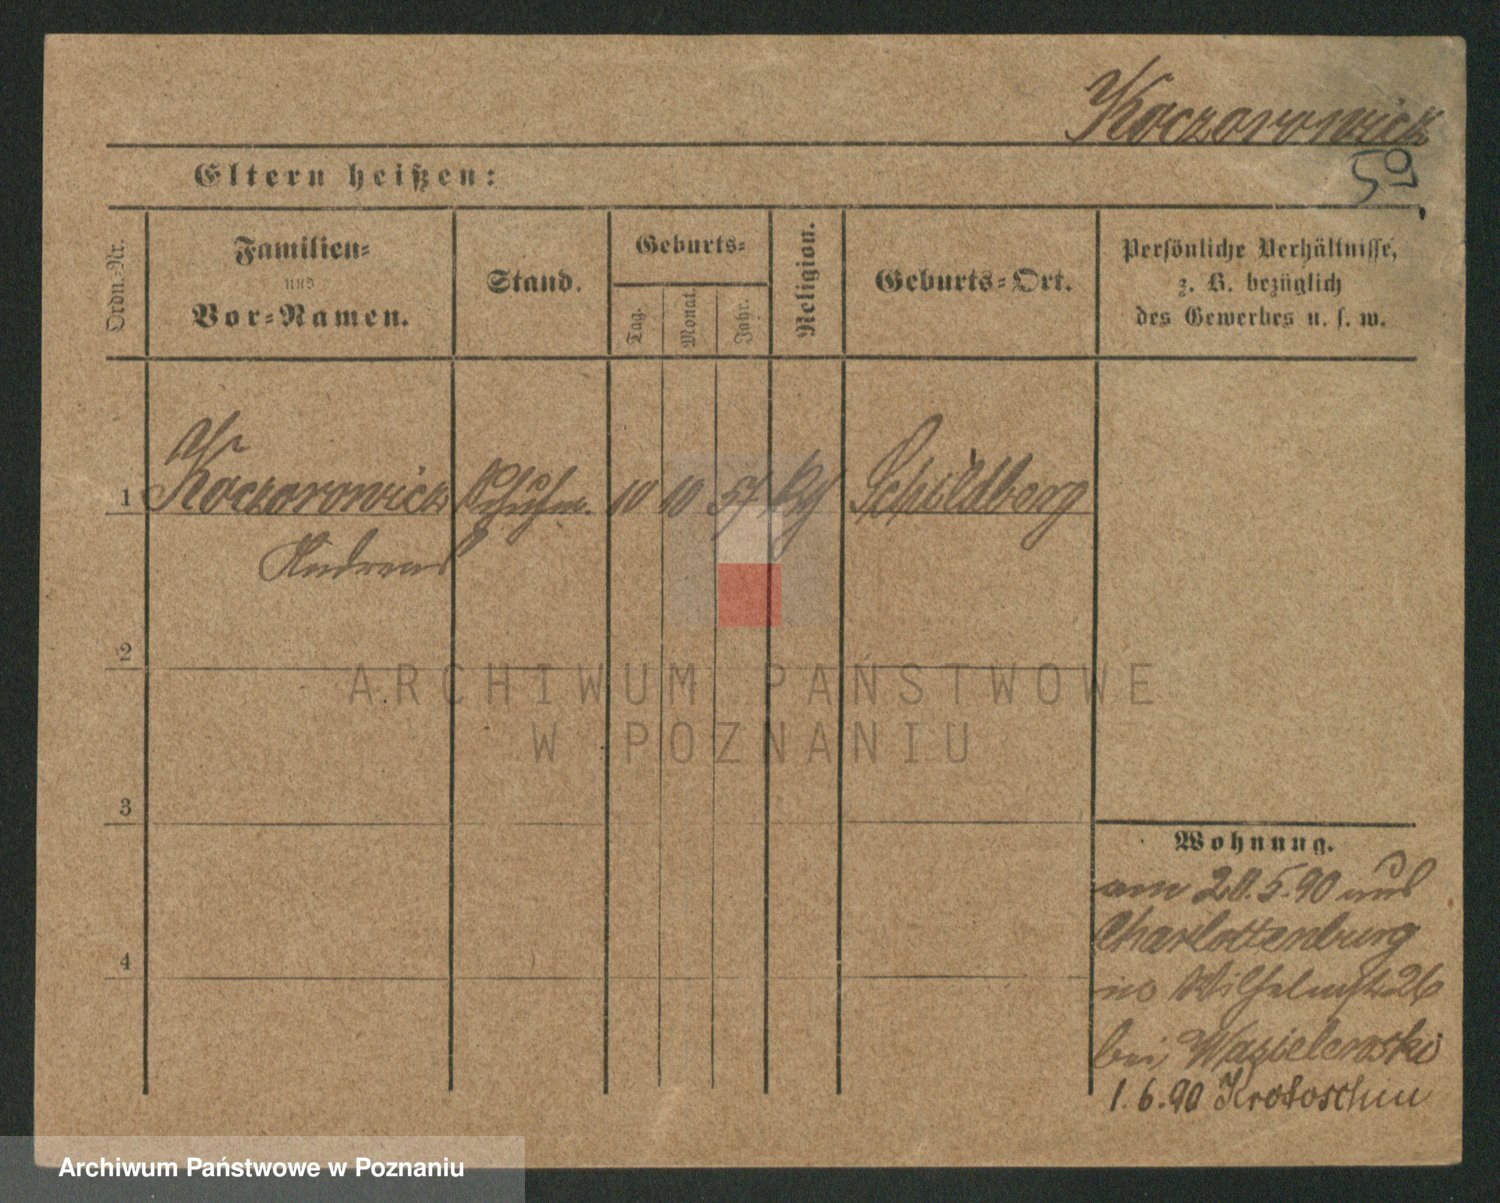 Kaczorowicz
59
Eltern heißen:
Ordn.-Nr.
Familien-
und
Vor-Namen.
Stand.
Geburts-
Tag.
Monat.
Jahr.
Religion.
Geburts-Ort.
Persönliche Verhältnisse,
z. B. bezüglich
des Gewerbes u. s. w.
1 Kaczorowicz Schuhm. 10 10 57 Schildberg
Andreas
2
3
4
Wohnung.
am 20.5.90 aus
Charlottenburg
in Wilhelmstr 26
bei Wasielewski
1.6.90 Krotoschin
ARCHIWUM PAŃSTWOWE
W POZNANIU
Archiwum Państwowe w Poznaniu